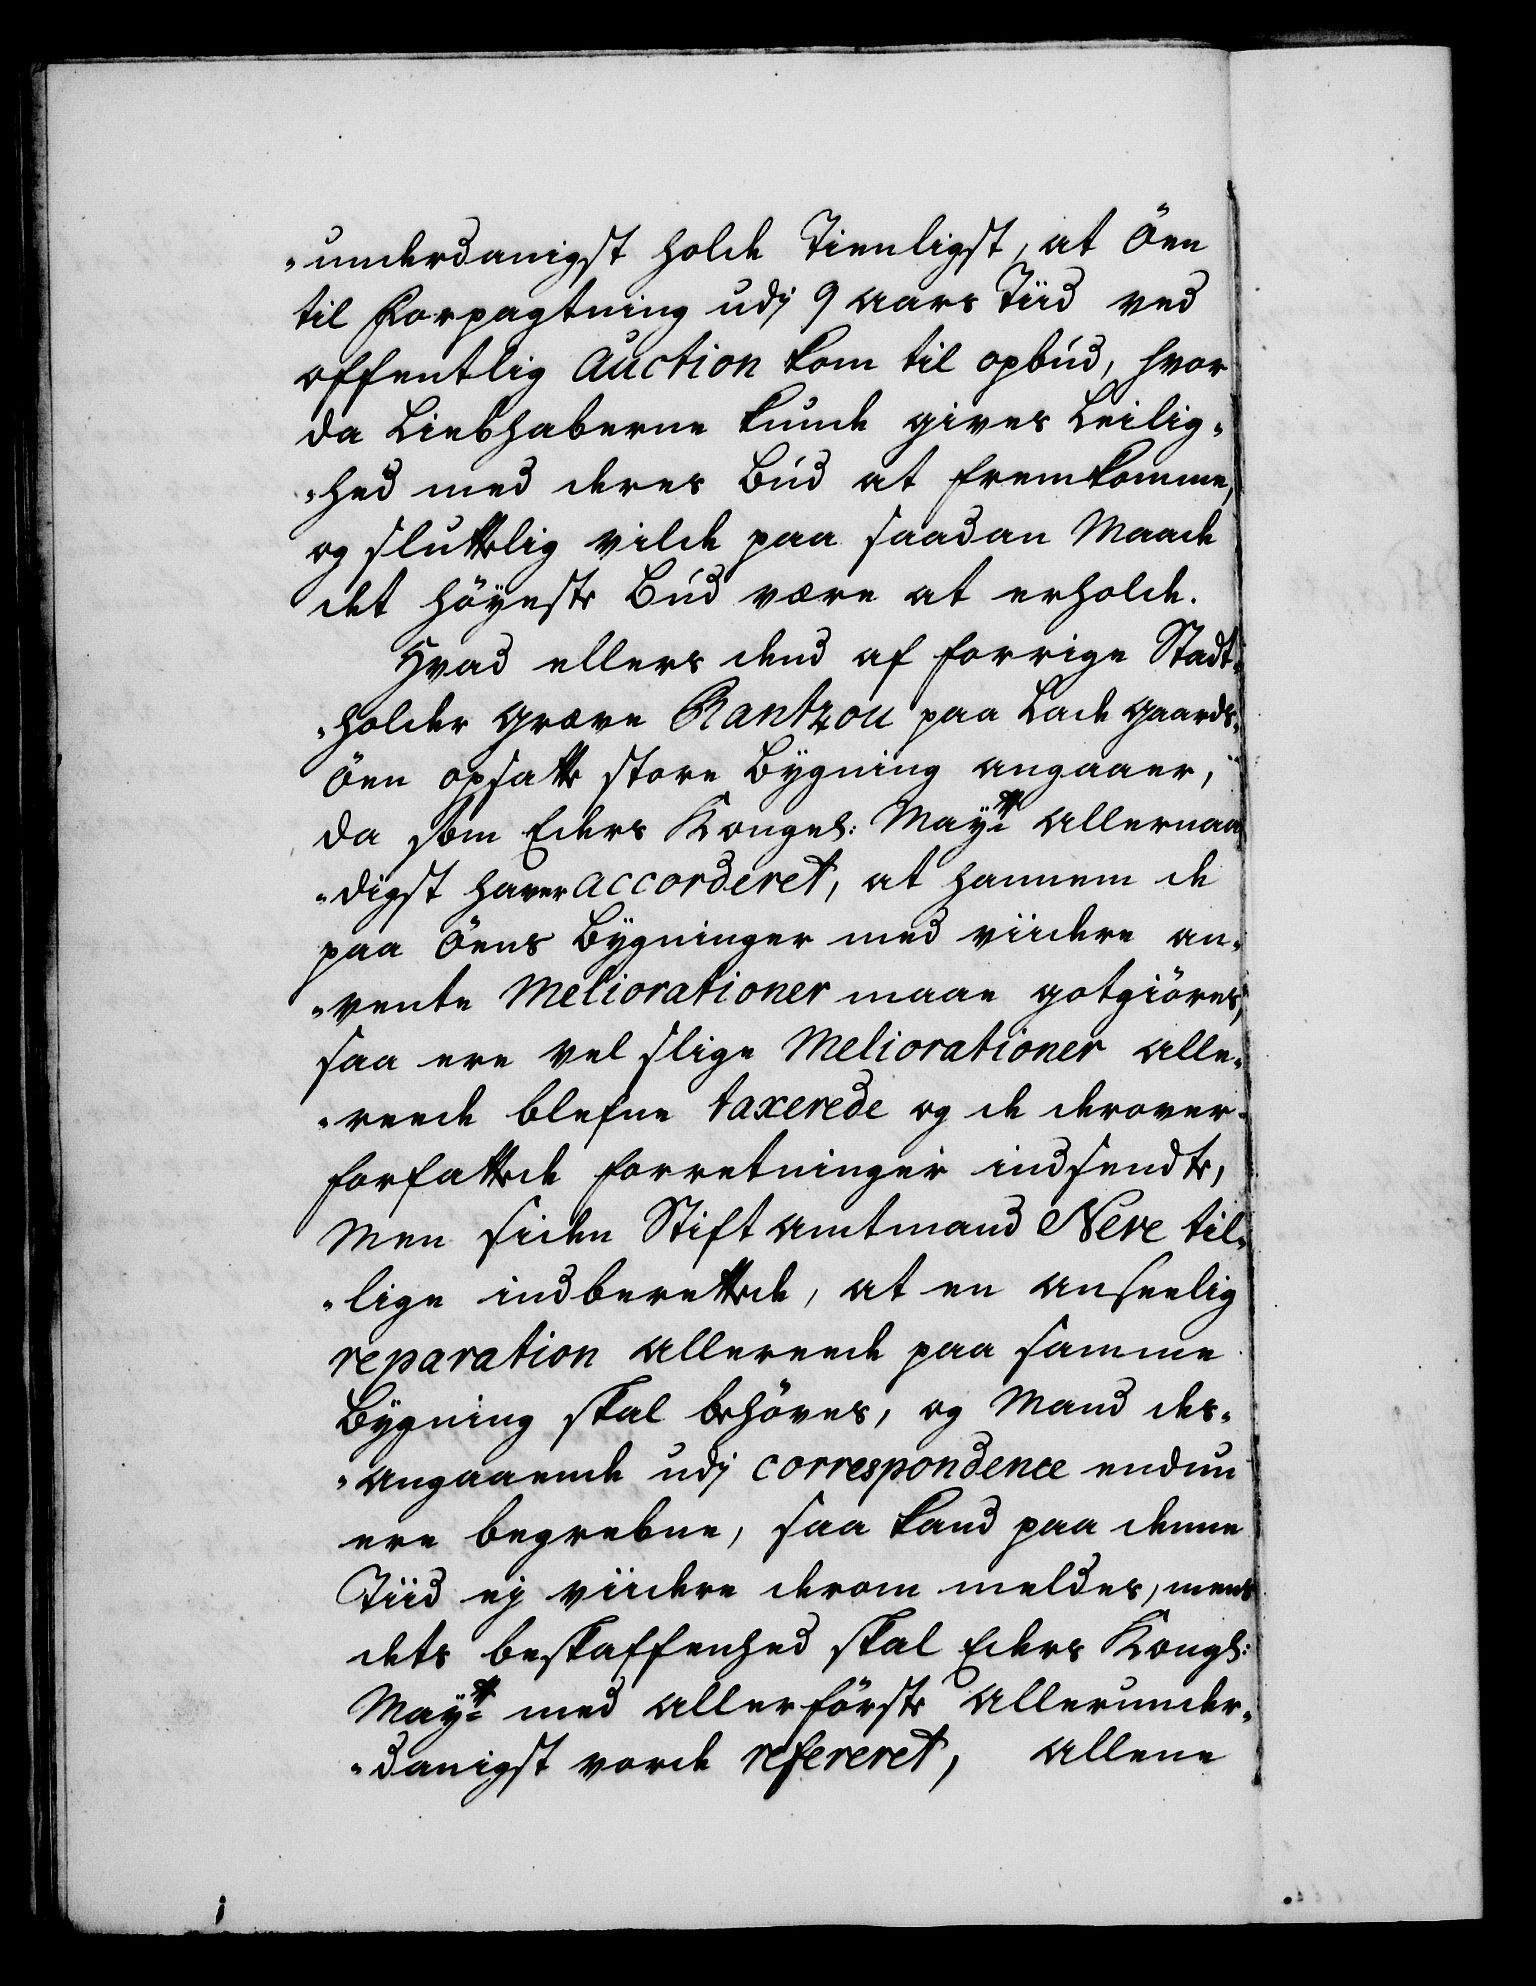 -underdanigst holde Tienligst, at Öen
til Forpagtning udj 9 Aars Tiid ved
offentlig Auction kom til opbud, hvor
da Liebhaberne kunde gives Leilig-
-hed med deres Bud at fremkomme,
og sluttelig vilde paa saadan Maade
det höyeste Bud være at erholde.
Hvad ellers dend af forrige Stadt-
-holder Græve Rantzou paa Ladegaards-
Öen opsatte store Bygning angaaer,
da som Eders Kongel: Mayt: Allernaa-
-digst haver accorderet, at hannem de
paa Öens Bygninger med viidere an-
-vente Meliorationer maae gotgiöres,
saa ere vel slige Meliorationer Alle-
-reede blefne taxerede og de derover-
forfattede forretninger indsendte,
Men siden Stiftamtmand Neve til-
-lige indberettede, at en anseelig
reparation Allereede paa samme
Bygning skal behöves, og Mand des-
-angaaende udj correspondence endnu
ere begrebne, saa kand paa denne
Tiid ej viidere derom meldes, mens
dets beskaffenhed skal Eders Kongl:
Mayt: med allerförste Allerunder-
-danigst vorde refereret, Allene